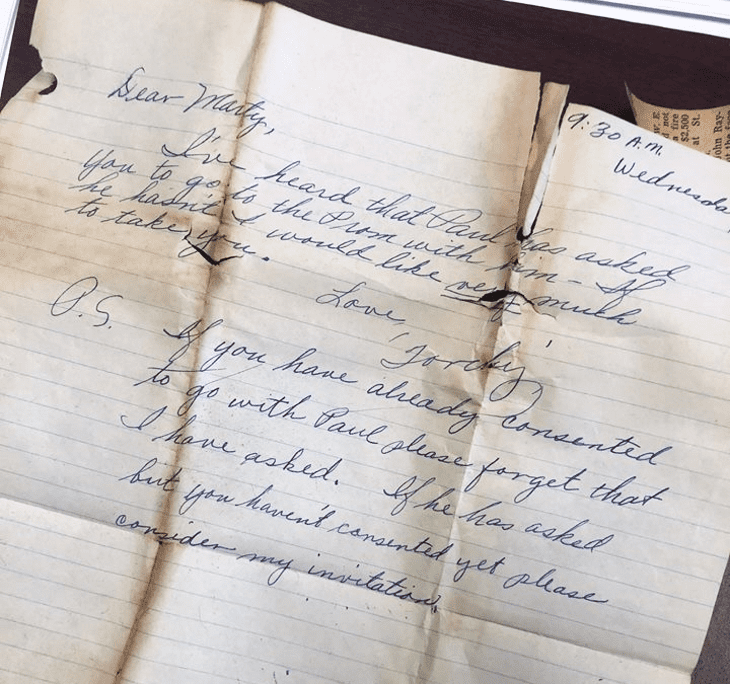 9:30 A.M.
Wednesda
Dear Marty,
I've heard that Paul has asked
you to go to the Prom with him - If
he hasn't I would like very much
to take you.
Love,
'Torchy'
P.S. If you have already consented
to go with Paul please forget that
I have asked. If he has asked
but you haven't consented yet please
consider my invitation.
E.
d not
a fire
$2,500
at St.
ohn Ray-